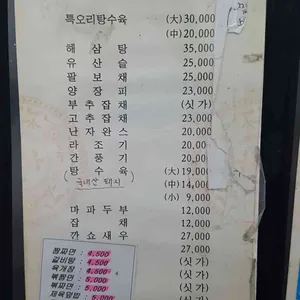 특오리탕수육 (大) 30,000
(中) 20,000
해 삼 탕 35,000
유 산 슬 25,000
팔 보 채 25,000
양 장 피 23,000
부 추 잡 채 (싯 가)
고 추 잡 채 23,000
난 자 완 스 20,000
라 조 기 20,000
깐 풍 기 20,000
탕 수 육 (大) 19,000
(국내산 돼지) (中) 14,000
(小) 9,000
마 파 두 부 12,000
잡 채 12,000
깐 쇼 새 우 27,000
27,000
(싯 가)
(싯 가)
(싯 가)
짬짜면 : 4,500
갈비탕 : 4,500
육개장 : 4,500
볶짬면 : 5,000
볶짜면 : 5,000
제육덮밥 : 5,000